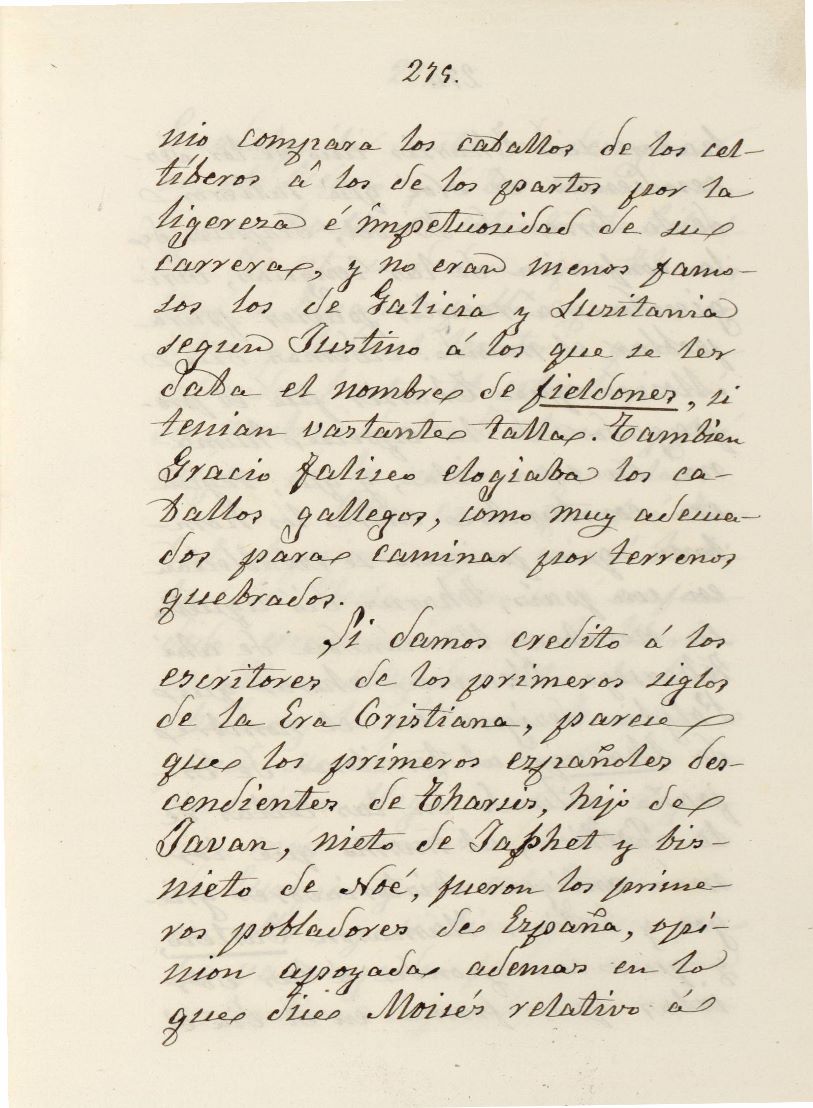 275.
nio compara los caballos de los cel-
tíberos â los de los partos por la
ligereza é impetuosidad de su
carrera, y no eran menos famo-
sos los de Galicia y Lusitania
segun Justino á los que se les
daba el nombre de fieldones, si
tenian vastante talla. Tambien
Gracio Falisco elogiaba los ca-
ballos gallegos, como muy adecua-
dos para caminar por terrenos
quebrados.
Si damos credito á los
escritores de los primeros siglos
de la Era Cristiana, parece
que los primeros españoles des-
cendientes de Tharsis, hijo de
Javan, nieto de Japhet y bis-
nieto de Noé, fueron los prime-
ros pobladores de España, opi-
nion apoyada ademas en lo
que dice Moisés relativo á